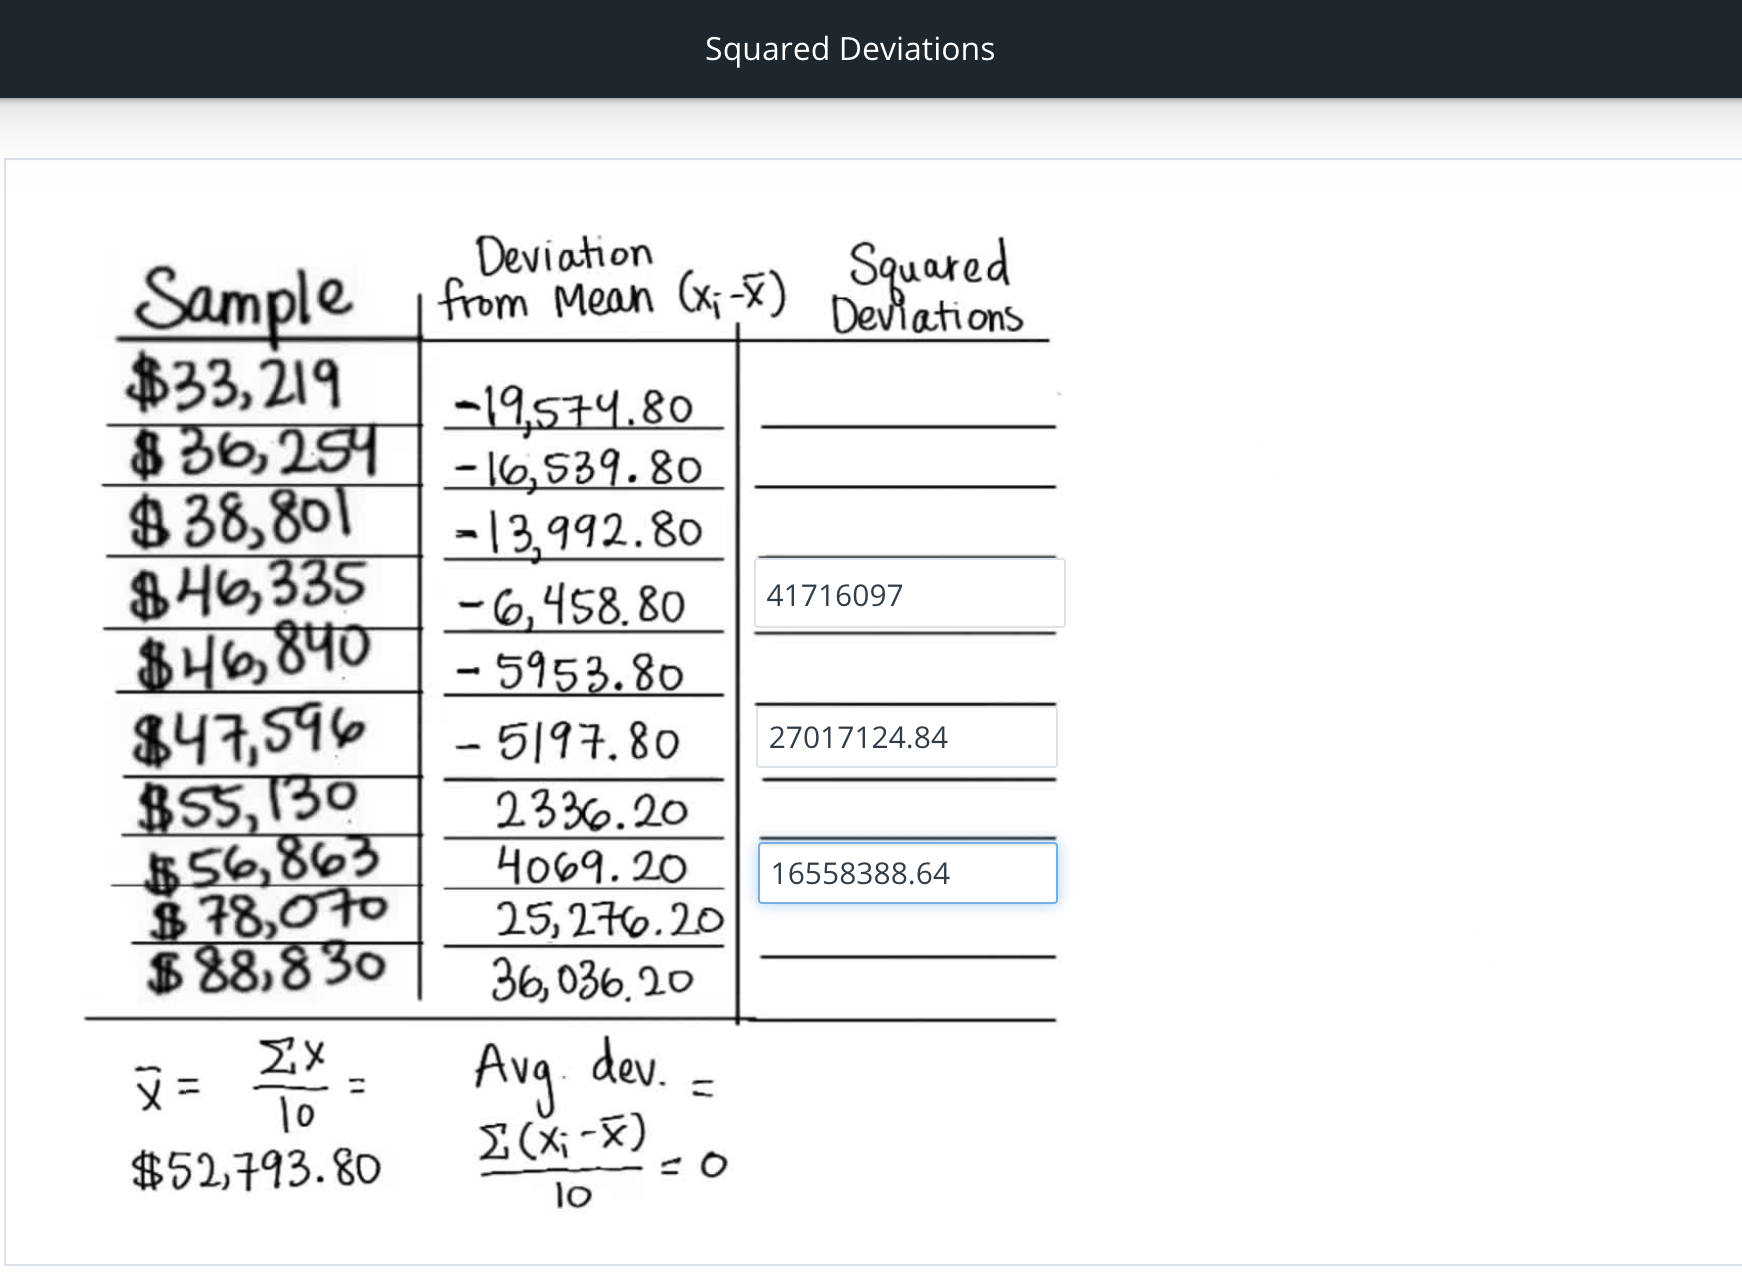 Squared Deviations
Sample | Deviation from Mean (xᵢ-x̄) | Squared Deviations
$33,219 | -19,574.80
$36,254 | -16,539.80
$38,801 | -13,992.80
$46,335 | -6,458.80 | 41716097
$46,840 | -5953.80
$47,596 | -5197.80 | 27017124.84
$55,130 | 2336.20
$56,863 | 4069.20 | 16558388.64
$78,070 | 25,276.20
$88,830 | 36,036.20
x̄ = Σx/10 =
$52,793.80
Avg. dev. =
Σ(xᵢ-x̄)/10 = 0